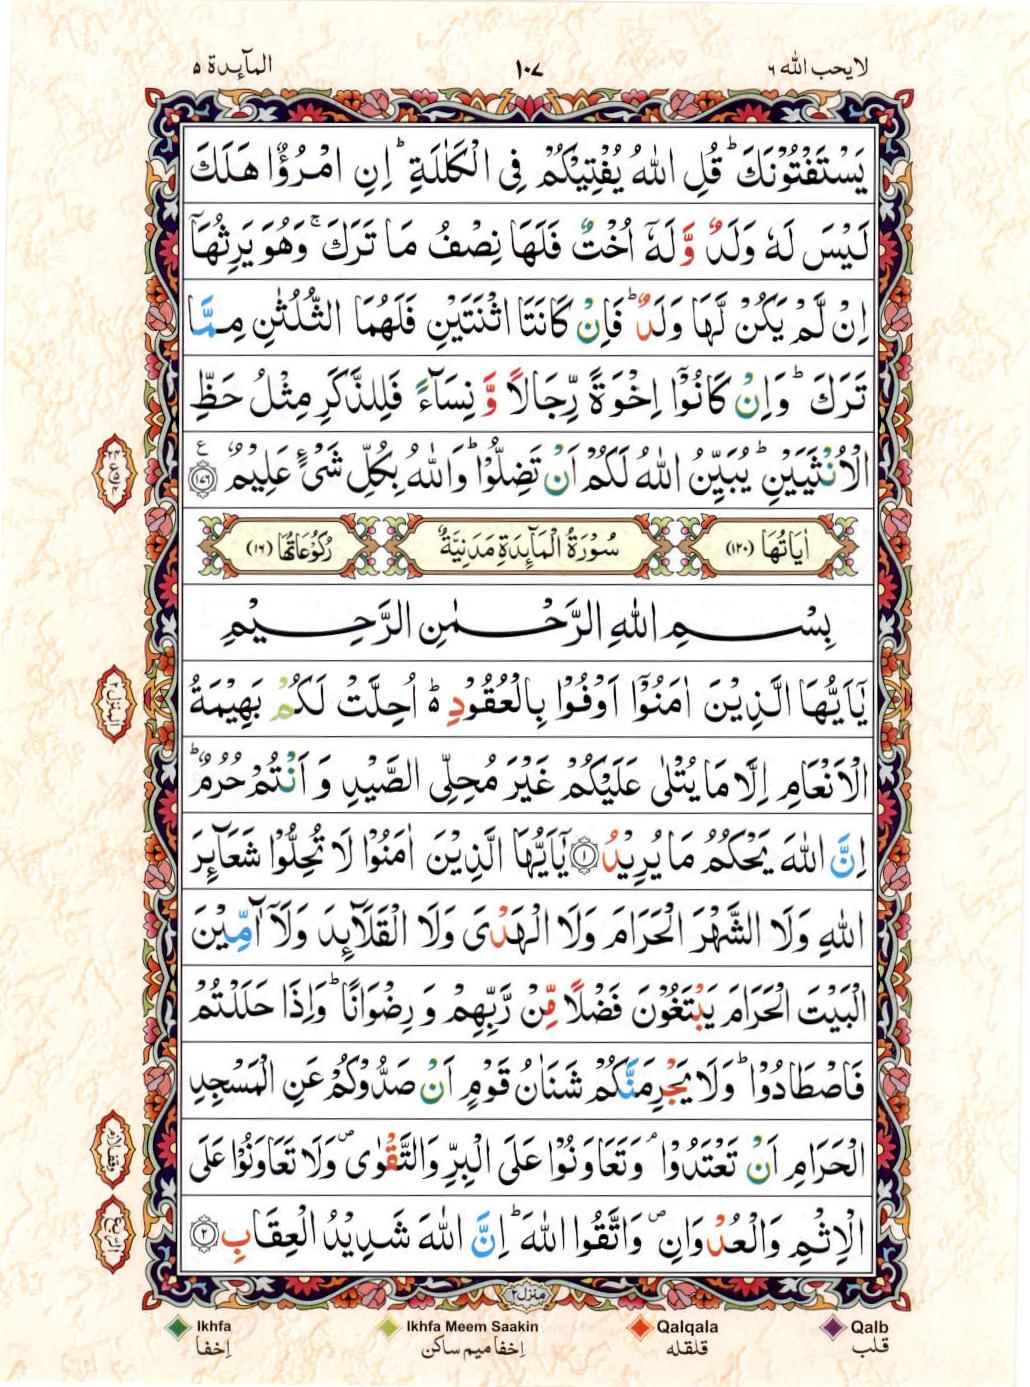 المآئدة ۵
۱۰۷
لا یحب الله ۶
یَسْتَفْتُوْنَكَ ؕ قُلِ اللّٰهُ یُفْتِیْكُمْ فِی الْكَلٰلَةِ ؕ اِنِ امْرُؤٌا هَلَكَ
لَیْسَ لَهٗ وَلَدٌ وَّ لَهٗۤ اُخْتٌ فَلَهَا نِصْفُ مَا تَرَكَ ۚ وَهُوَ یَرِثُهَاۤ
اِنْ لَّمْ یَكُنْ لَّهَا وَلَدٌ ؕ فَاِنْ كَانَتَا اثْنَتَیْنِ فَلَهُمَا الثُّلُثٰنِ مِمَّا
تَرَكَ ؕ وَاِنْ كَانُوْۤا اِخْوَةً رِّجَالًا وَّ نِسَآءً فَلِلذَّكَرِ مِثْلُ حَظِّ
الْاُنْثَیَیْنِ ؕ یُبَیِّنُ اللّٰهُ لَكُمْ اَنْ تَضِلُّوْا ؕ وَاللّٰهُ بِكُلِّ شَیْءٍ عَلِیْمٌ ۠ ﴿۱۷۶﴾ ع
اٰیَاتُهَا (۱۲۰) سُوْرَةُ الْمَآئِدَةِ مَدَنِیَّةٌ رُكُوْعَاتُهَا (۱۶)
بِسْمِ اللّٰهِ الرَّحْمٰنِ الرَّحِیْمِ
یٰۤاَیُّهَا الَّذِیْنَ اٰمَنُوْۤا اَوْفُوْا بِالْعُقُوْدِ ؕ۬ اُحِلَّتْ لَكُمْ بَهِیْمَةُ
الْاَنْعَامِ اِلَّا مَا یُتْلٰی عَلَیْكُمْ غَیْرَ مُحِلِّی الصَّیْدِ وَ اَنْتُمْ حُرُمٌ ؕ
اِنَّ اللّٰهَ یَحْكُمُ مَا یُرِیْدُ ﴿۱﴾ یٰۤاَیُّهَا الَّذِیْنَ اٰمَنُوْا لَا تُحِلُّوْا شَعَآئِرَ
اللّٰهِ وَلَا الشَّهْرَ الْحَرَامَ وَلَا الْهَدْیَ وَلَا الْقَلَآئِدَ وَلَاۤ آٰمِّیْنَ
الْبَیْتَ الْحَرَامَ یَبْتَغُوْنَ فَضْلًا مِّنْ رَّبِّهِمْ وَ رِضْوَانًا ؕ وَاِذَا حَلَلْتُمْ
فَاصْطَادُوْا ؕ وَلَا یَجْرِمَنَّكُمْ شَنَاٰنُ قَوْمٍ اَنْ صَدُّوْكُمْ عَنِ الْمَسْجِدِ
الْحَرَامِ اَنْ تَعْتَدُوْا ۘ وَتَعَاوَنُوْا عَلَی الْبِرِّ وَالتَّقْوٰی ۪ وَلَا تَعَاوَنُوْا عَلَی
الْاِثْمِ وَالْعُدْوَانِ ۪ وَاتَّقُوا اللّٰهَ ؕ اِنَّ اللّٰهَ شَدِیْدُ الْعِقَابِ ﴿۲﴾
منزل ۲
Ikhfa
اِخفا
Ikhfa Meem Saakin
اِخفا میم ساکن
Qalqala
قلقله
Qalb
قلب